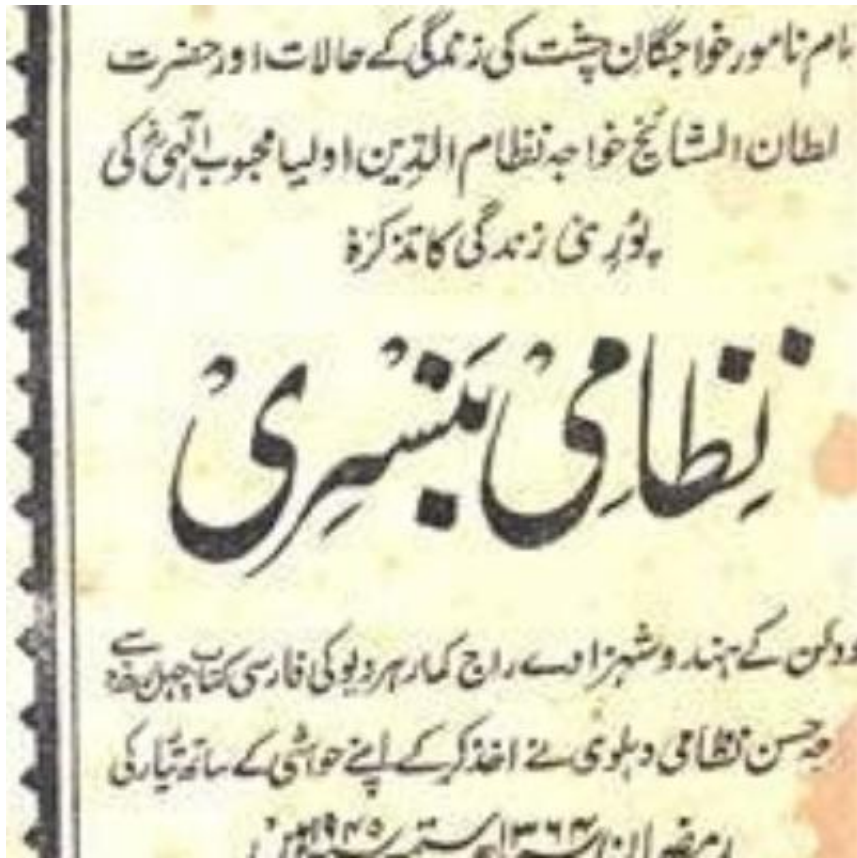 نام نامور خواجگان چشت کی زندگی کے حالات اور حضرت
لطان المشائخ خواجہ نظام الدین اولیا محبوب الٰہیؒ کی
پوری زندگی کا تذکرہ
نظامی بنسری
دکن کے ہندو شہزادے راج کمار ہردیو کی فارسی کتاب چہل روزہ سے
جہ حسن نظامی دہلوی نے اخذ کرکے اپنے حواشی کے ساتھ تیار کی
رمضان ۱۳۶۴ ستمبر ۱۹۴۵ میں